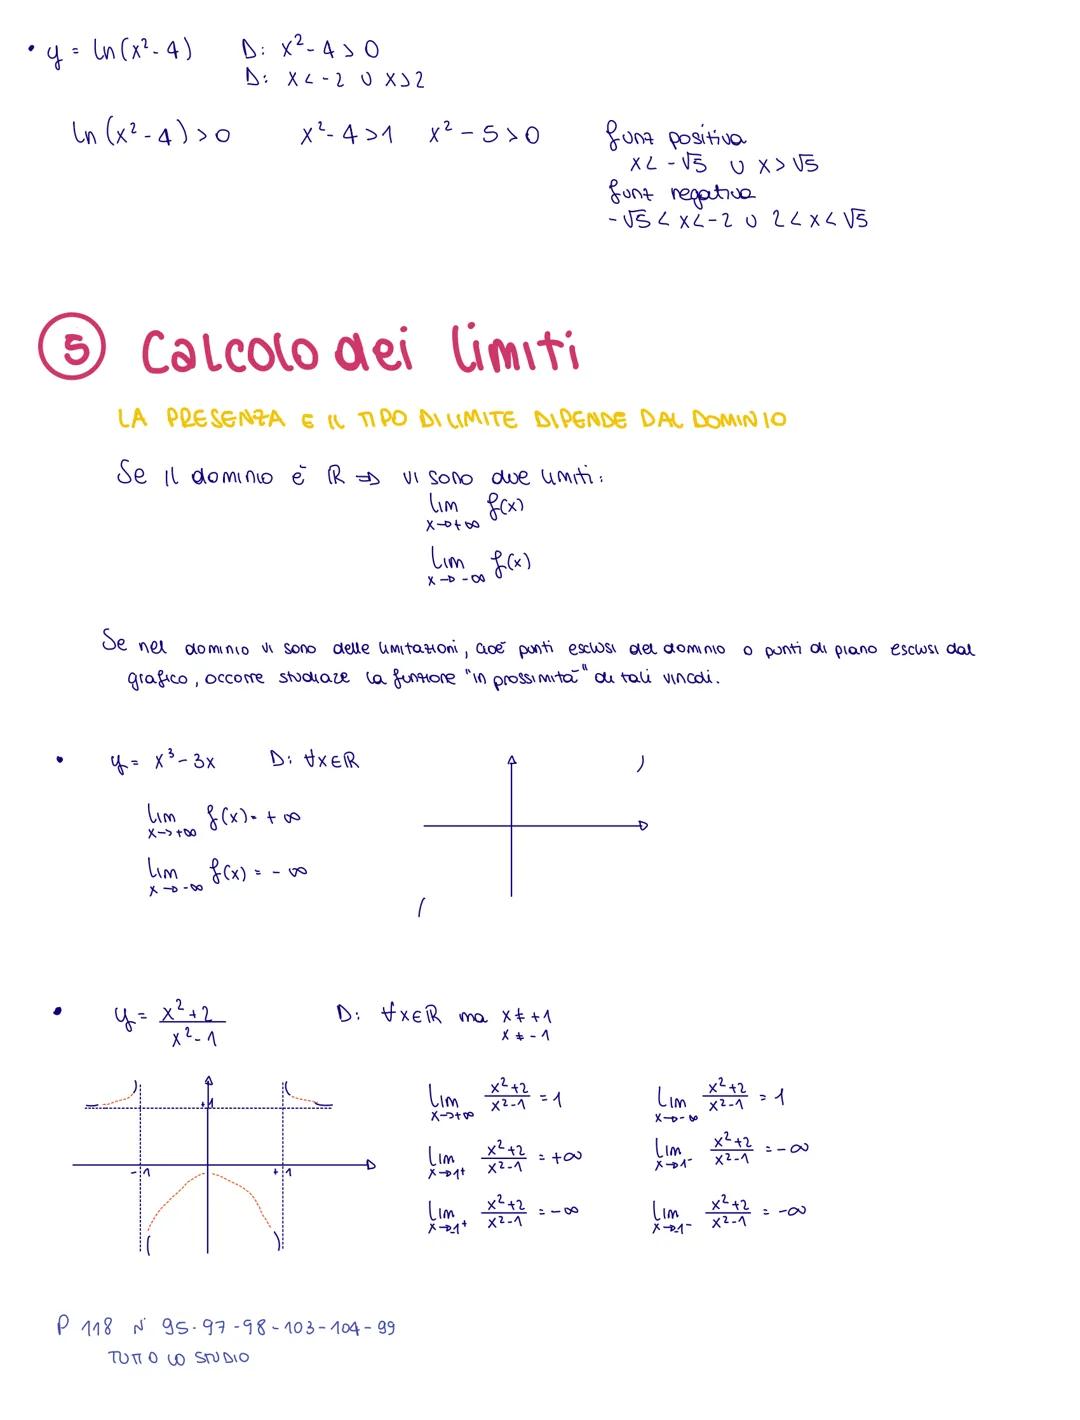 • y = ln(x²-4) D: x²-4>0
D: x<-2 ∪ x>2
ln(x²-4)>0 x²-4>1 x²-5>0 funz positiva
x<-√5 ∪ x>√5
funz negativa
-√5<x<-2 ∪ 2<x<√5
5 Calcolo dei limiti
LA PRESENZA E IL TIPO DI LIMITE DIPENDE DAL DOMINIO
Se il dominio è ℝ ⇒ vi sono due limiti:
lim x→+∞ f(x)
lim x→-∞ f(x)
Se nel dominio vi sono delle limitazioni, cioè punti esclusi del dominio o punti di piano esclusi dal
grafico, occorre studiare la funzione "in prossimità" di tali vincoli.
• y = x³-3x D: ∀x∈ℝ
lim x→+∞ f(x) = +∞
lim x→-∞ f(x) = -∞
• y = (x²+2)/(x²-1) D: ∀x∈ℝ ma x≠+1
x≠-1
+1
-1 +1
lim x→+∞ (x²+2)/(x²-1) = 1 lim x→-∞ (x²+2)/(x²-1) = 1
lim x→1⁺ (x²+2)/(x²-1) = +∞ lim x→1⁻ (x²+2)/(x²-1) = -∞
lim x→-1⁺ (x²+2)/(x²-1) = -∞ lim x→-1⁻ (x²+2)/(x²-1) = -∞
P 118 N° 95-97-98-103-104-99
TUTTO LO STUDIO